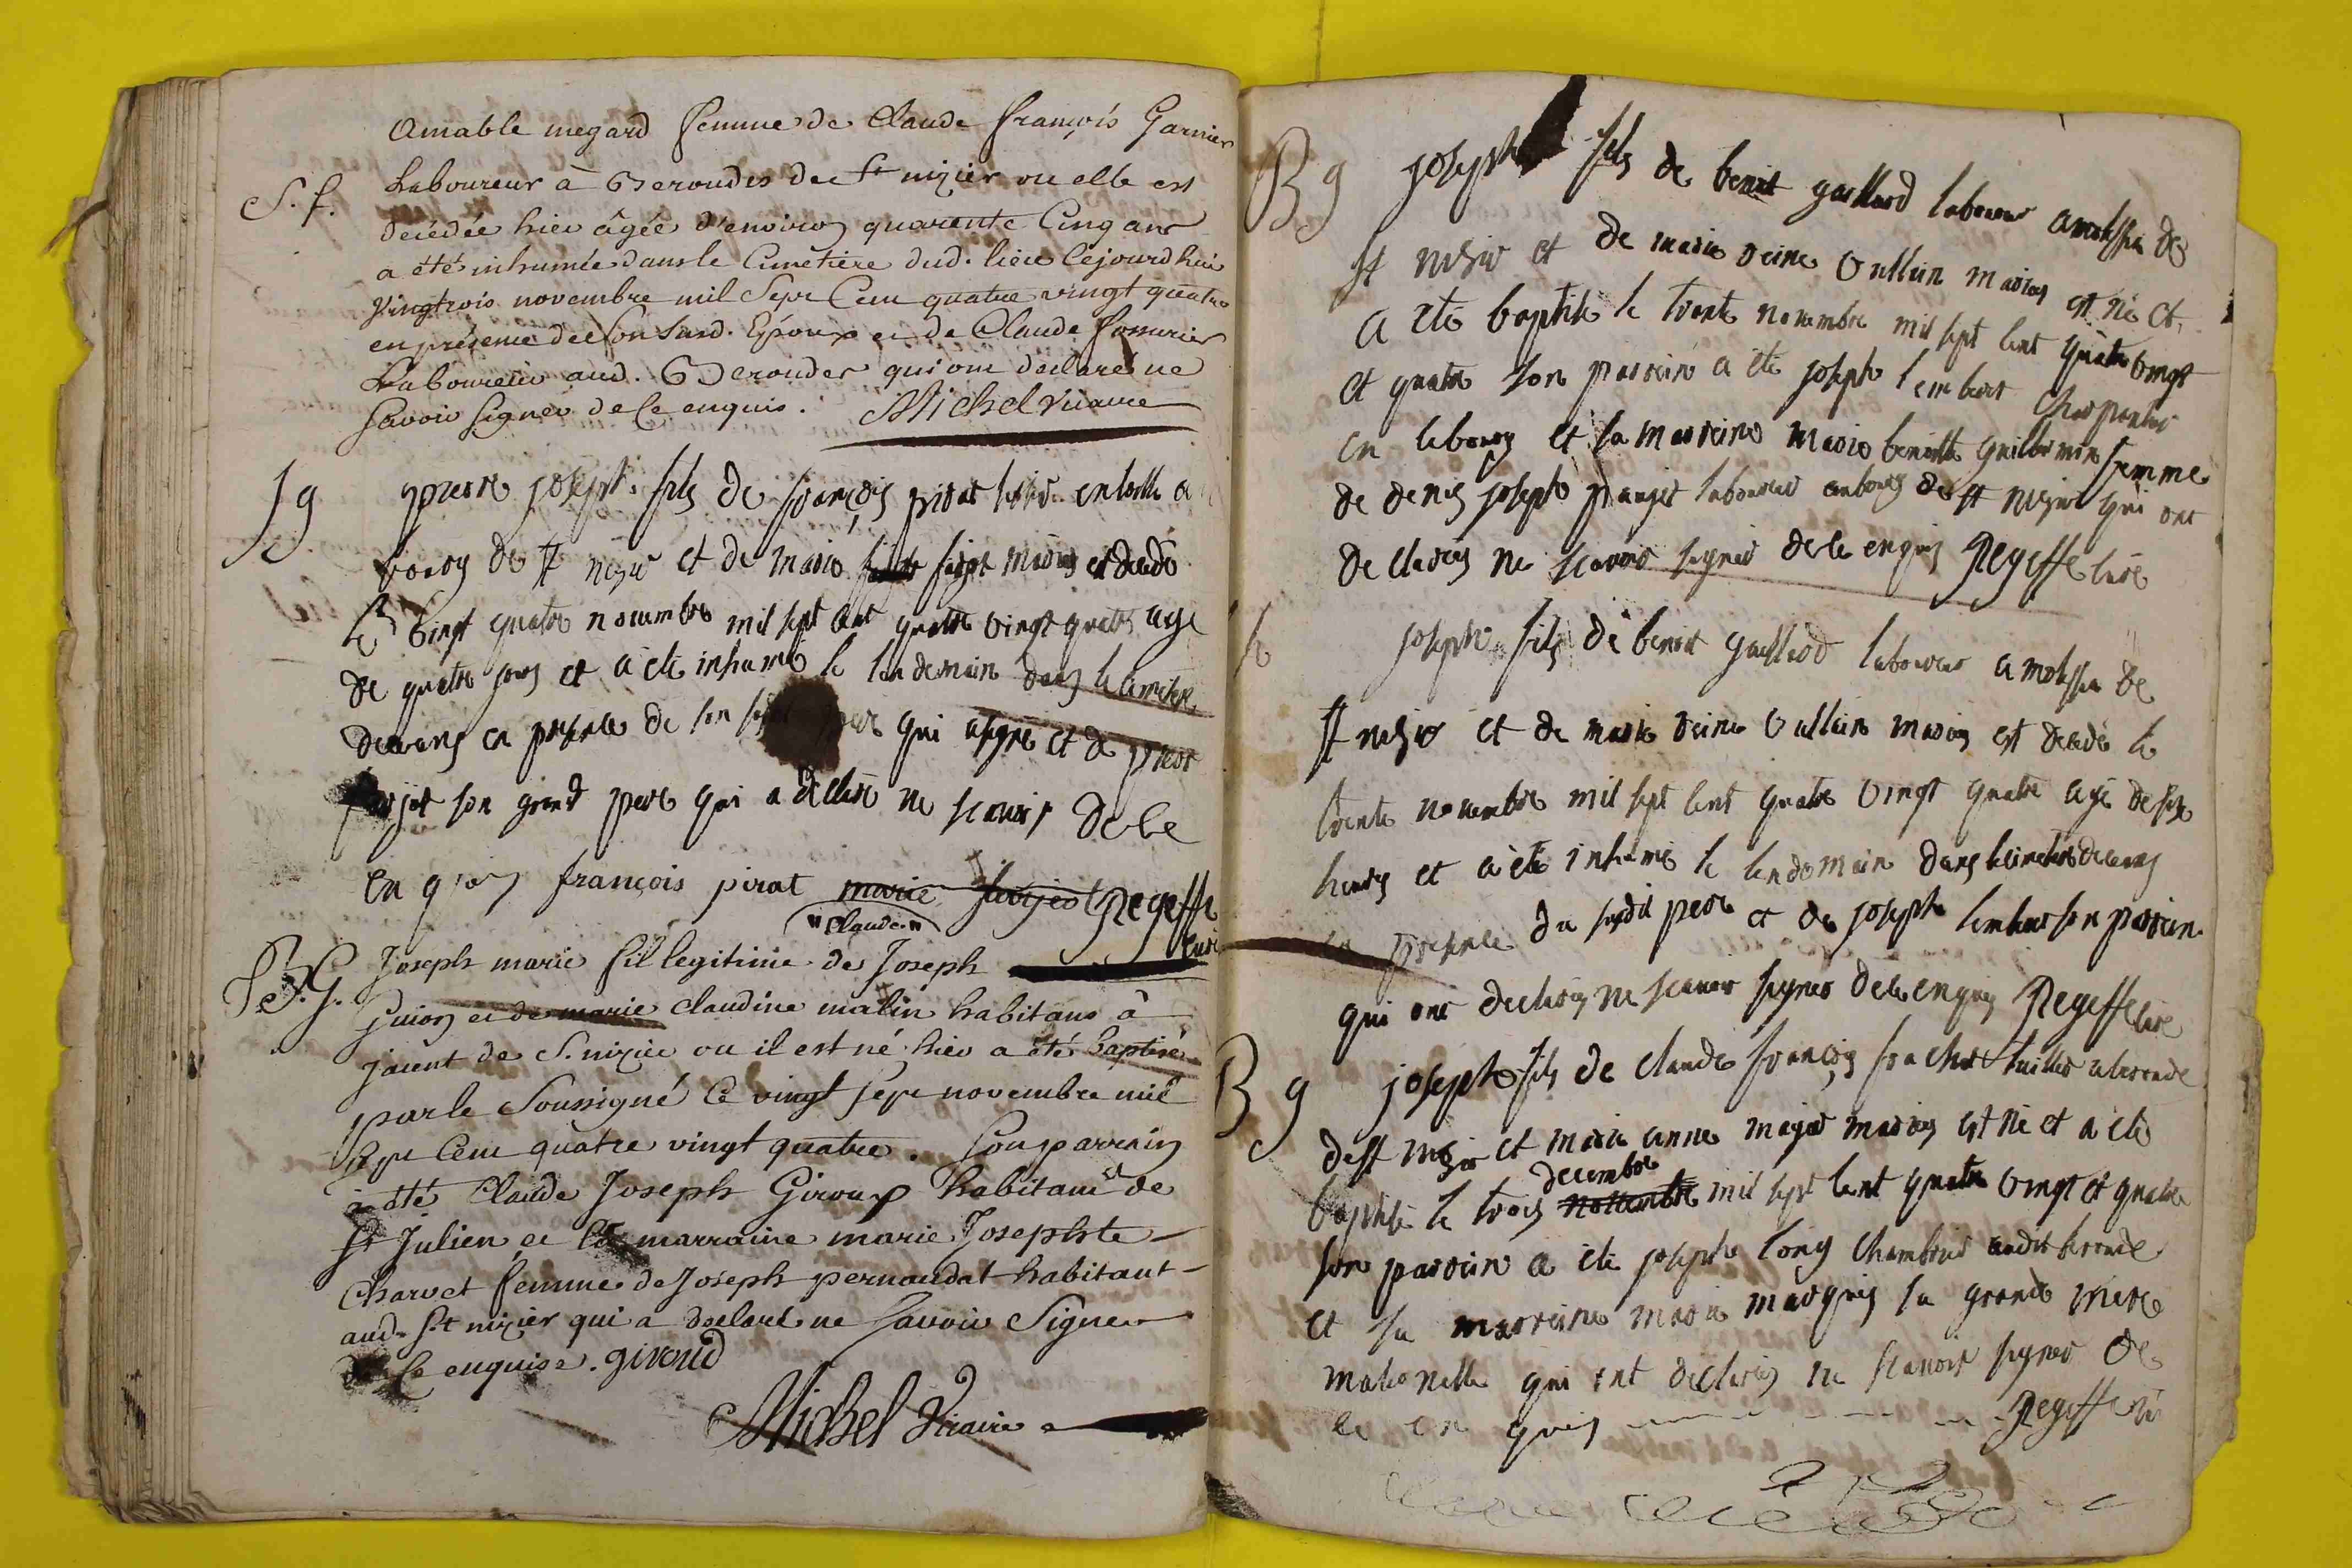 Amable megard femme de Claude françois Garnier
S. f.
Laboureur à Beroudes de St nizier ou elle est
decédée hier âgée d'environ quarente Cinq ans
a été inhumée dans le Cimetiere dud. lieu Cejourdhui
vingtrois novembre mil Sept Cent quatre vingt quatre
en présence de son Susd. Epoux et de Claude
Laboureur aud. Beroudes qui ont declaré ne
Savoir Signer de Ce enquis. Michel vicaire
S g
pierre joseph fils de françois pirat
bourg de st nizier et de marie maries est decede
le vingt quatre novembre mil sept cent quatre vingt quatre age
de quatre jours et a été inhumé le lendemain dans le cimetiere
deceans en presence de son pere qui a signé et de pierre
son grand pere qui a declaré ne scavoir de ce
enquis françois pirat marie Pegeffe
curé
"Claude"
B. G.
Joseph marie fil legitime de Joseph
guion et de marie claudine malin habitans à
jaient de S. nizier ou il est né hier a été baptisé
par le Soussigné Ce vingt sept novembre mil
Sept Cent quatre vingt quatre. Son parrain
a été Claude Joseph Giroux habitant de
St Julien et La marraine marie Josephte
Charvet femme de Joseph pernoudat habitant
aud. St nizier qui a declaré ne Savoir Signer
de Ce enquise. giroud
Michel Vicaire
B g
joseph fils de benoit gaillard laboureur a de
st nizier et de marie reine Vullin maries est né et
a été baptisé le trente novembre mil sept cent quatre vingt
et quatre son parrain a été joseph lembert charpentier
en lebourg et sa marreine marie benoitte guillermin femme
de denis joseph laboureur aubourg de st nizier qui ont
declarés ne scavoir signer de ce enquis Pegeffe curé
joseph fils de benoit gaillard laboureur a de
st nizier et de marie reine Vullin maries est decedé le
trente novembre mil sept cent quatre vingt quatre agé de six
heures et a été inhumé le lendemain dans le cimetiere deceans
en presence du susdit pere et de joseph lembert son parrein
qui ont declarés ne scavoir signer de ce enquis Pegeffe curé
B g
joseph fils de claude françois tuillier a beroude
de st nizier et marie anne maries est né et a été
decembre
baptisé le trois novembre mil sept cent quatre vingt et quatre
son parrein a été joseph long chambrier audit beroude
et sa marreine marie marquis sa grande mere
maternelle qui ont declarés ne scavoir signer de
ce enquis Pegeffe curé